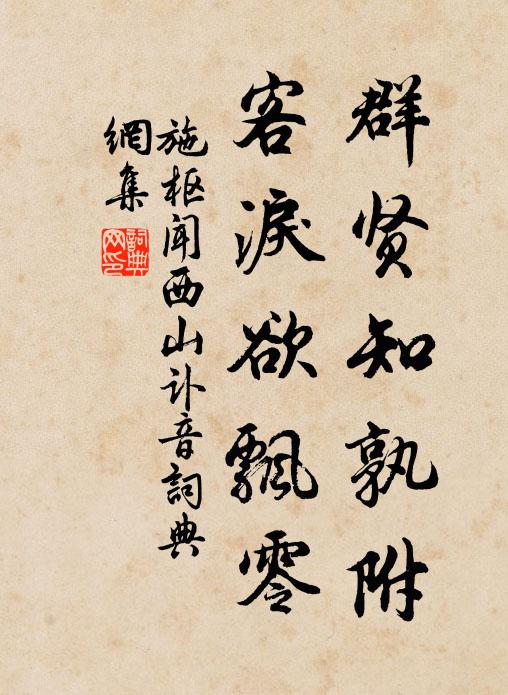 群贤知孰附
客淚欲飄零
施枢闻西山讣音詞典
網集
詞典
网印